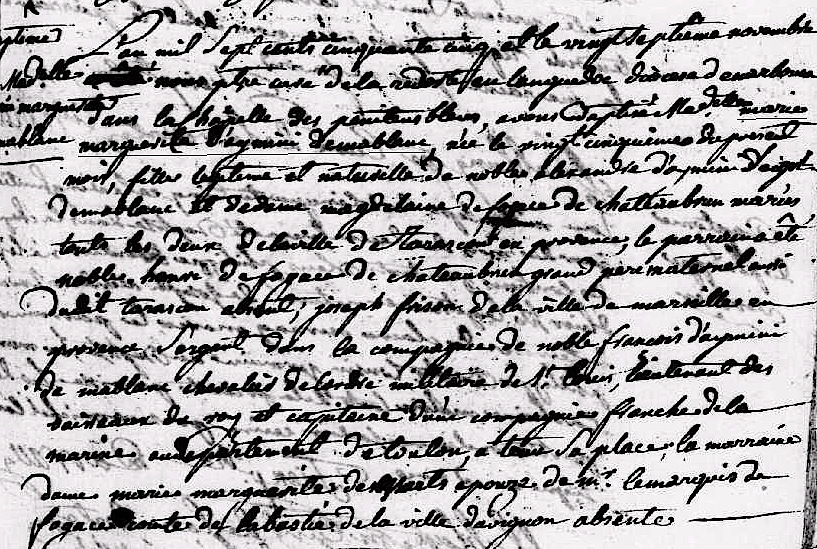 L'an mil sept cents cinquante cinq, et le vingt septième novembre
nous ptre curé de la redorte en languedoc diocese de narbonne
dans la chapelle des penitens bleus, avons baptisé Mad.elle marie
marguerite d'aymini de mablanc, née le vingt cinquieme du present
mois, fille legitime et naturelle de noble alexandre d'aymini
de mablanc et de dame magdelaine de fogace de chateaubrun mariés
touts les deux de la ville de tarascon en provence, le parrain a été
noble henri de fogace de chateaubrun grand pere maternel aussi
dudit tarascon absent, joseph frison de la ville de marseille en
provence sergent dans la compagnie de noble françois d'aymini
de mablanc chevalier de l'ordre militaire de St. Louis, lieutenant des
vaisseaux du roy et capitaine d'une compagnie franche de la
marine au departement de toulon, a tenu sa place, la marraine
dame marie marguerite epouze de mr. le marquis de
fogace comte de labastie de la ville d'avignon absente
ptême
Madelle
marguerite
mablanc